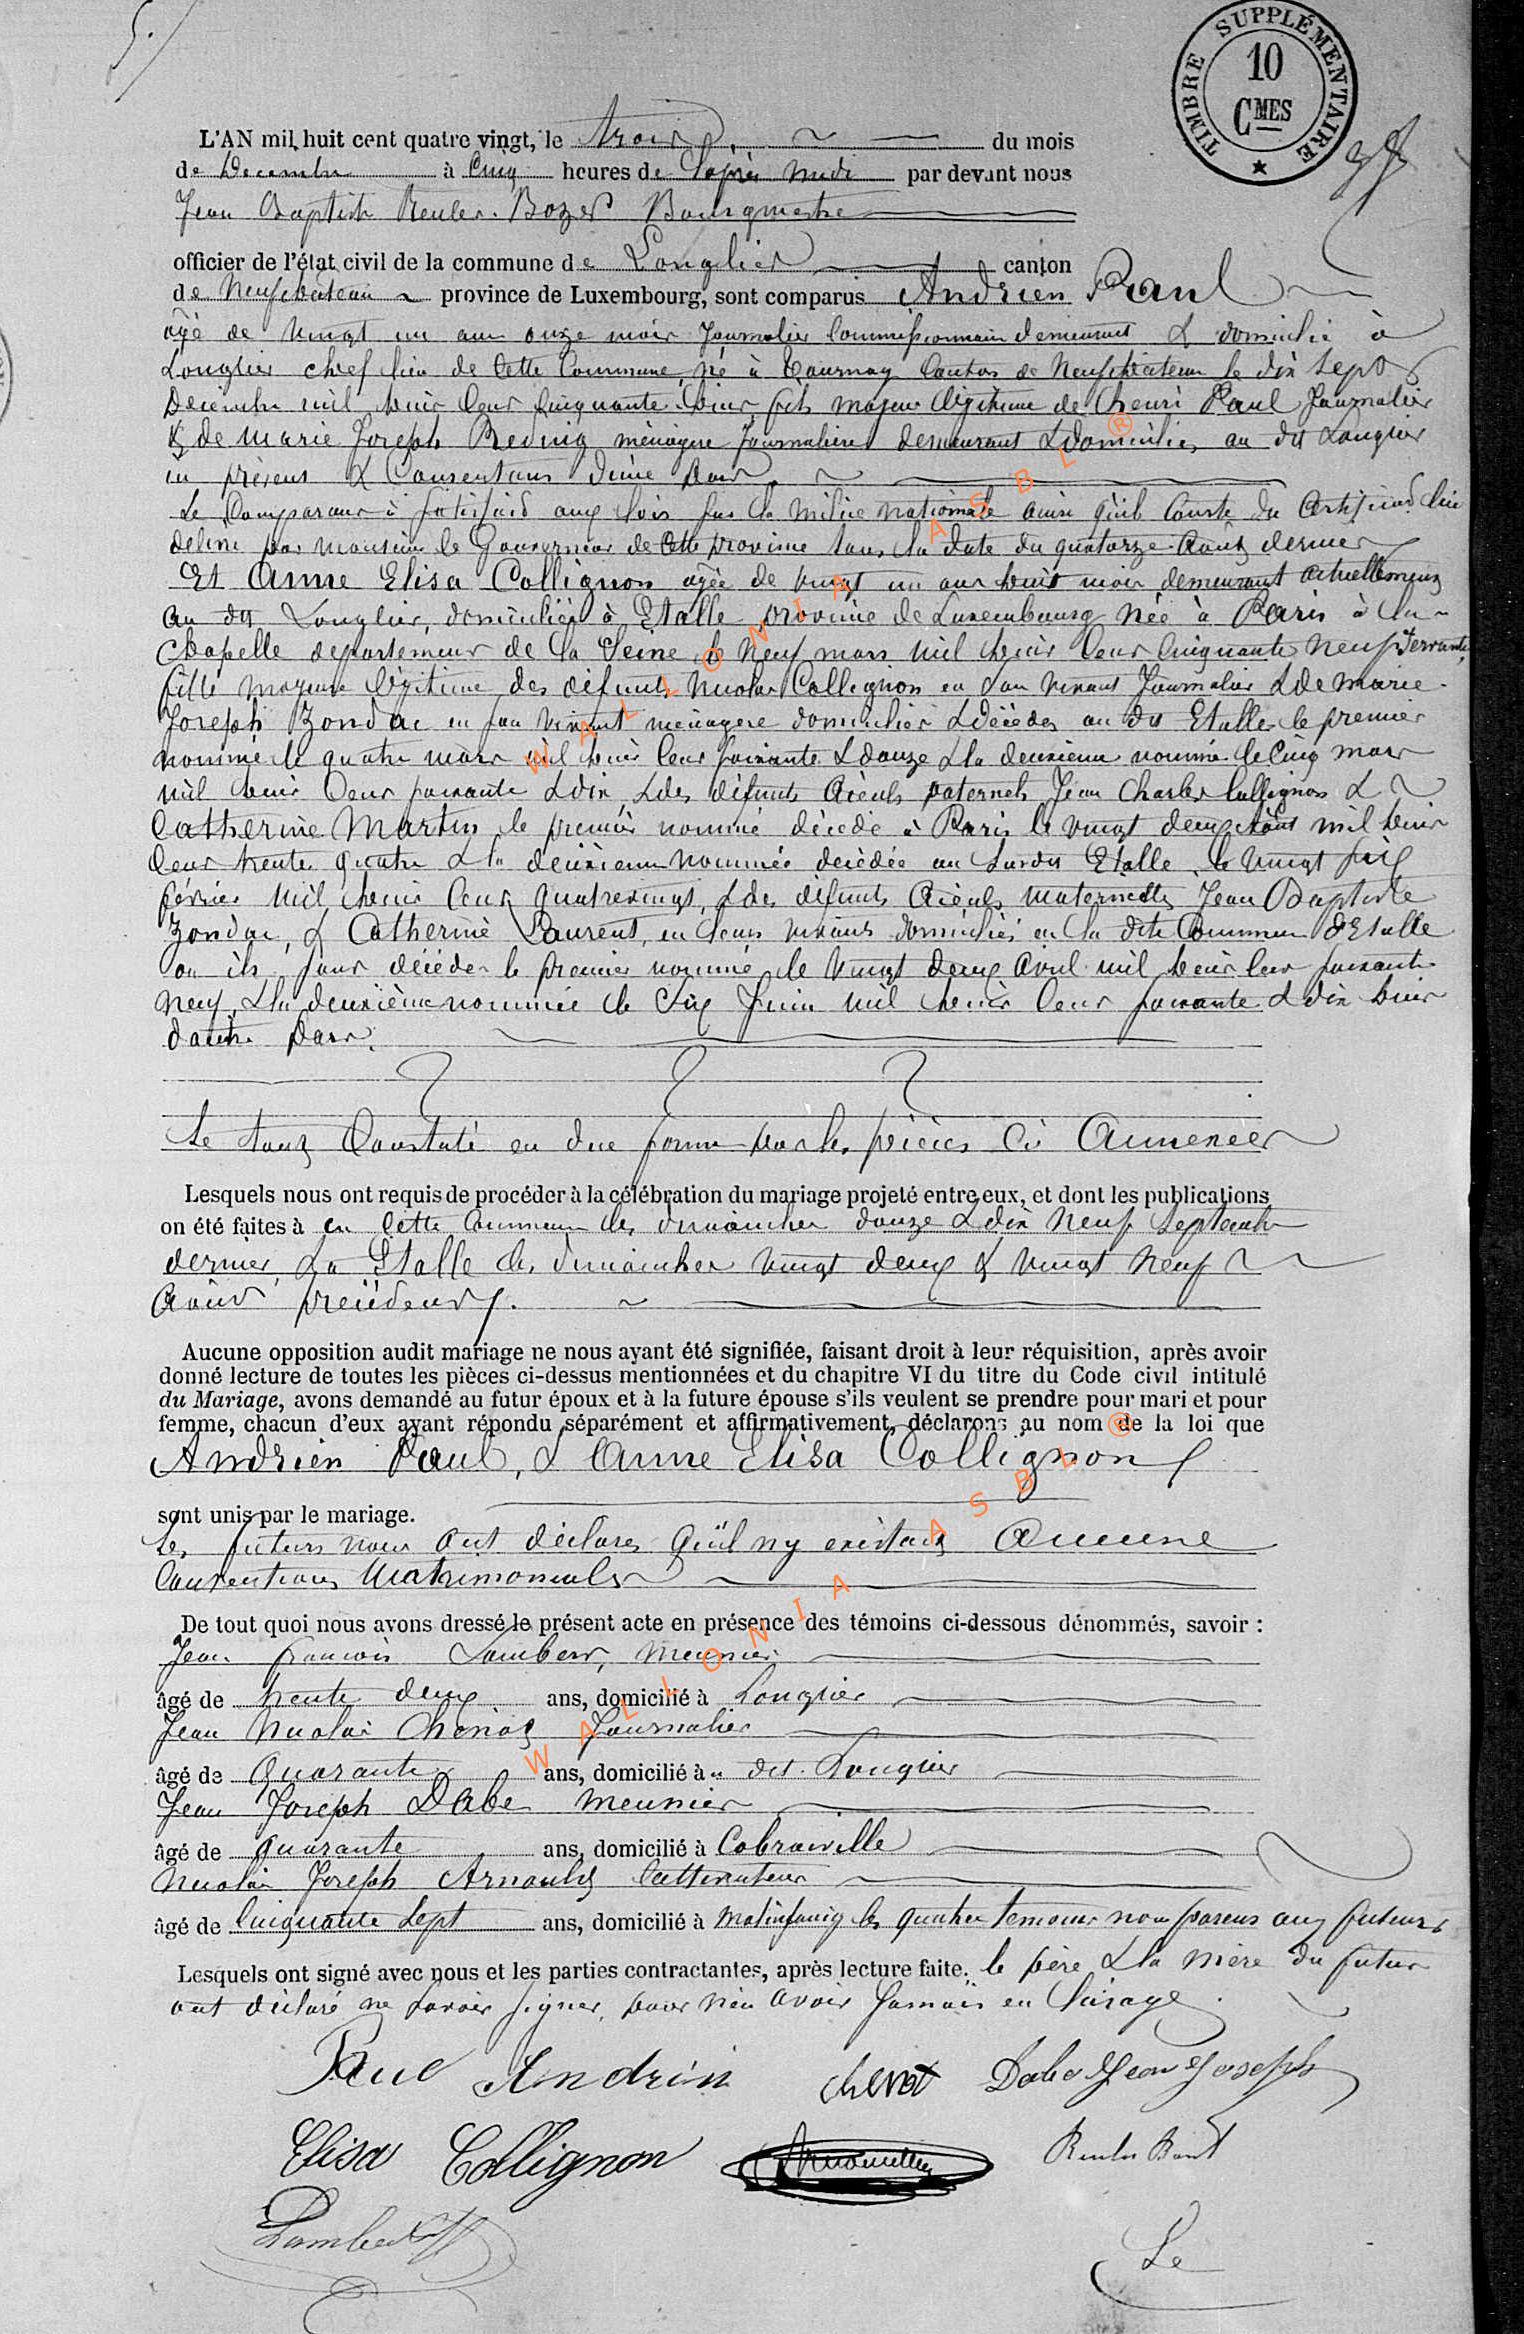 5.
TIMBRE SUPPLÉMENTAIRE
10
CMES
L'AN mil huit cent quatre vingt, le trois du mois
de Décembre à Cinq heures de l'après midi par devant nous
Jean Baptiste Reuler-Bozet Bourgmestre
officier de l'état civil de la commune de Longlier canton
de Neufchâteau province de Luxembourg, sont comparus Andrien Paul
âgé de vingt un ans onze mois Journalier Commissionnaire demeurant & domicilié à
Longlier chef lieu de Cette Commune, né à Tournay Canton de Neufchâteau le dix sept
Décembre mil huit Cent Cinquante huit, fils majeur légitime de henri Paul Journalier
& de Marie Joseph Reding ménagère Journalière demeurant & domiciliés au dit Longlier
ici présens & Consentans d'une part.
Le Comparant à satisfaid aux lois sur la Milice nationale ainsi qu'il Conste du Certificat lui
délivré par Monsieur le Gouverneur de Cette province sous la date du quatorze Août dernier
Et Anne Elisa Collignon agée de vingt un ans huit mois demeurant actuellement
au dit Longlier, domiciliée à Etalle province de Luxembourg Née à Paris à la
Chapelle département de la Seine le Neuf mars mil huit Cent Cinquante Neuf, Servante,
fille majeure légitime des défunts Nicolas Collignon en son vivant Journalier & de Marie
Joseph Zondac en son vivant ménagère domiciliés & décédés au dit Etalle le premier
nommé le quatre mars mil huit Cent soixante & douze & la deuxième nommée le Cinq mars
mil huit Cent soixante & dix, & des défunts Aïeuls paternels Jean Charles Collignon &
Catherine Martin le premier nommé décédé à Paris le vingt deux Août mil huit
Cent trente quatre & la deuxième nommée décédée au susdit Etalle le vingt six
février mil huit Cent quatrevingt, & des défunts Aïeuls maternels Jean Baptiste
Zondac, & Catherine Laurent, en leurs vivants domiciliés en la dite Commune d'Etalle
où ils sont décédés le premier nommé le vingt deux Avril mil huit Cent soixante
neuf & la deuxième nommée le Six Juin mil huit Cent soixante & dix huit
d'autre part.
Le tout Constaté en due forme par les pièces Ci Annexées
Lesquels nous ont requis de procéder à la célébration du mariage projeté entre eux, et dont les publications
on été faites à en Cette Commune les dimanches douze & dix Neuf Septembre
dernier & à Etalle les dimanches vingt deux & vingt Neuf
Août précédent.
Aucune opposition audit mariage ne nous ayant été signifiée, faisant droit à leur réquisition, après avoir
donné lecture de toutes les pièces ci-dessus mentionnées et du chapitre VI du titre du Code civil intitulé
du Mariage, avons demandé au futur époux et à la future épouse s'ils veulent se prendre pour mari et pour
femme, chacun d'eux ayant répondu séparément et affirmativement, déclarons au nom de la loi que
Andrien Paul, & Anne Elisa Collignon
sont unis par le mariage.
Les futurs nous ont déclarés qu'il n'y existait Aucune
Conventions Matrimoniales
De tout quoi nous avons dressé le présent acte en présence des témoins ci-dessous dénommés, savoir :
Jean françois Lambert, meunier
âgé de trente deux ans, domicilié à Longlier
Jean Nicolas Chenot Journalier
âgé de Quarante ans, domicilié à u dit Longlier
Jean Joseph Dabe meunier
âgé de quarante ans, domicilié à Cobraiville
Nicolas Joseph Arnould Cultivateur
âgé de Cinquante Sept ans, domicilié à Molinfaing les quatre témoins non parens aux futeurs
Lesquels ont signé avec nous et les parties contractantes, après lecture faite. le père & la mère du futur
ont déclaré ne savoir signer, pour n'en avoir Jamais eu l'usage.
Paul Andrien chenot Dabe Jean Joseph
Elisa Collignon Arnould Reuler Bozet
Lambert
Le
WALLONIA ASBL ®
WALLONIA ASBL ®